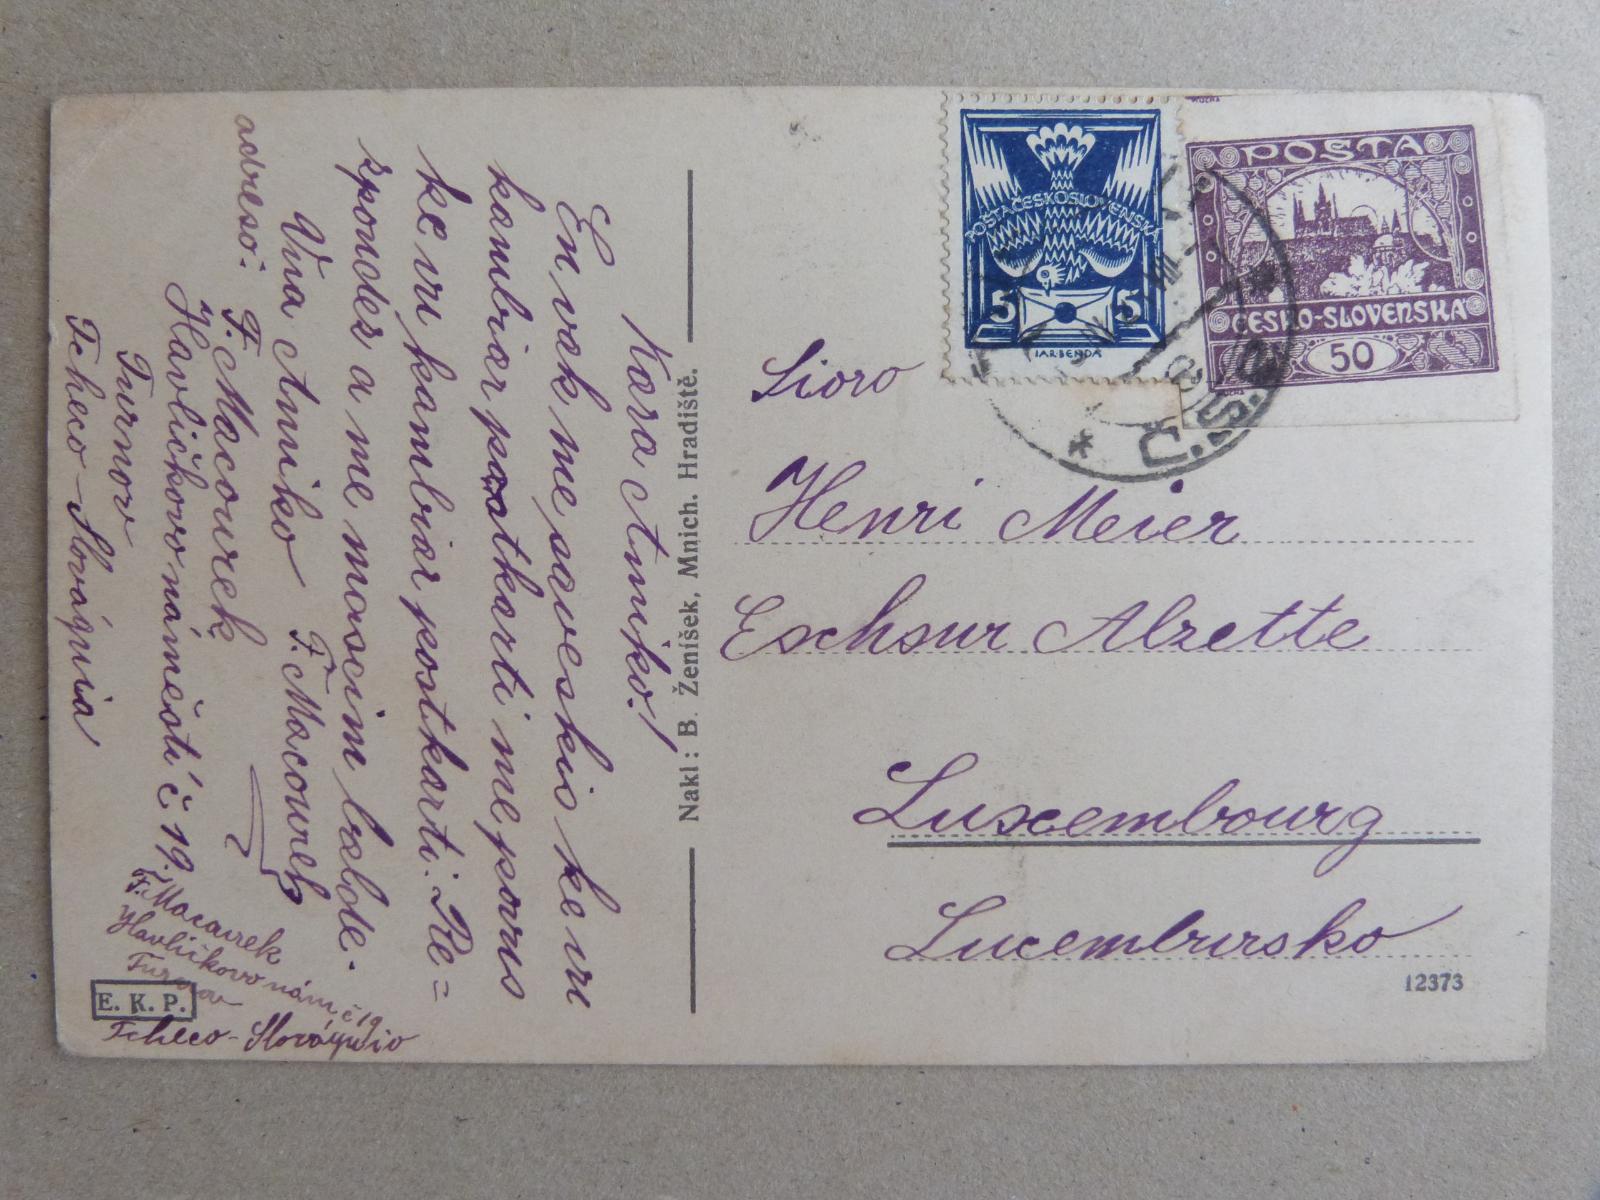 Kara Amiko!
En vak me saveskis ke vu
kambiar postkarti me povus
ke vu kambiar postkarti. Re=
spondez a me mascim balde.
Vua Amiko F. Macourek
adreso: F. Macourek
Havlíčkovo náměstí č 19.
Turnov
Tcheco-Slováquia
F. Macourek
Havlíčkovo nám. č 19
Turnov
Tcheco-Slováquio
E. K. P.
Nakl: B. Ženíšek, Mnich. Hradiště.
POŠTA ČESKOSLOVENSKÁ
5 5
IAR.BENDA
MUCHA
POŠTA
ČESKO-SLOVENSKÁ
50
MUCHA
Č.S.P.
Sioro
Henri Meier
Eschsur Alzette
Luxembourg
Lucembursko
12373